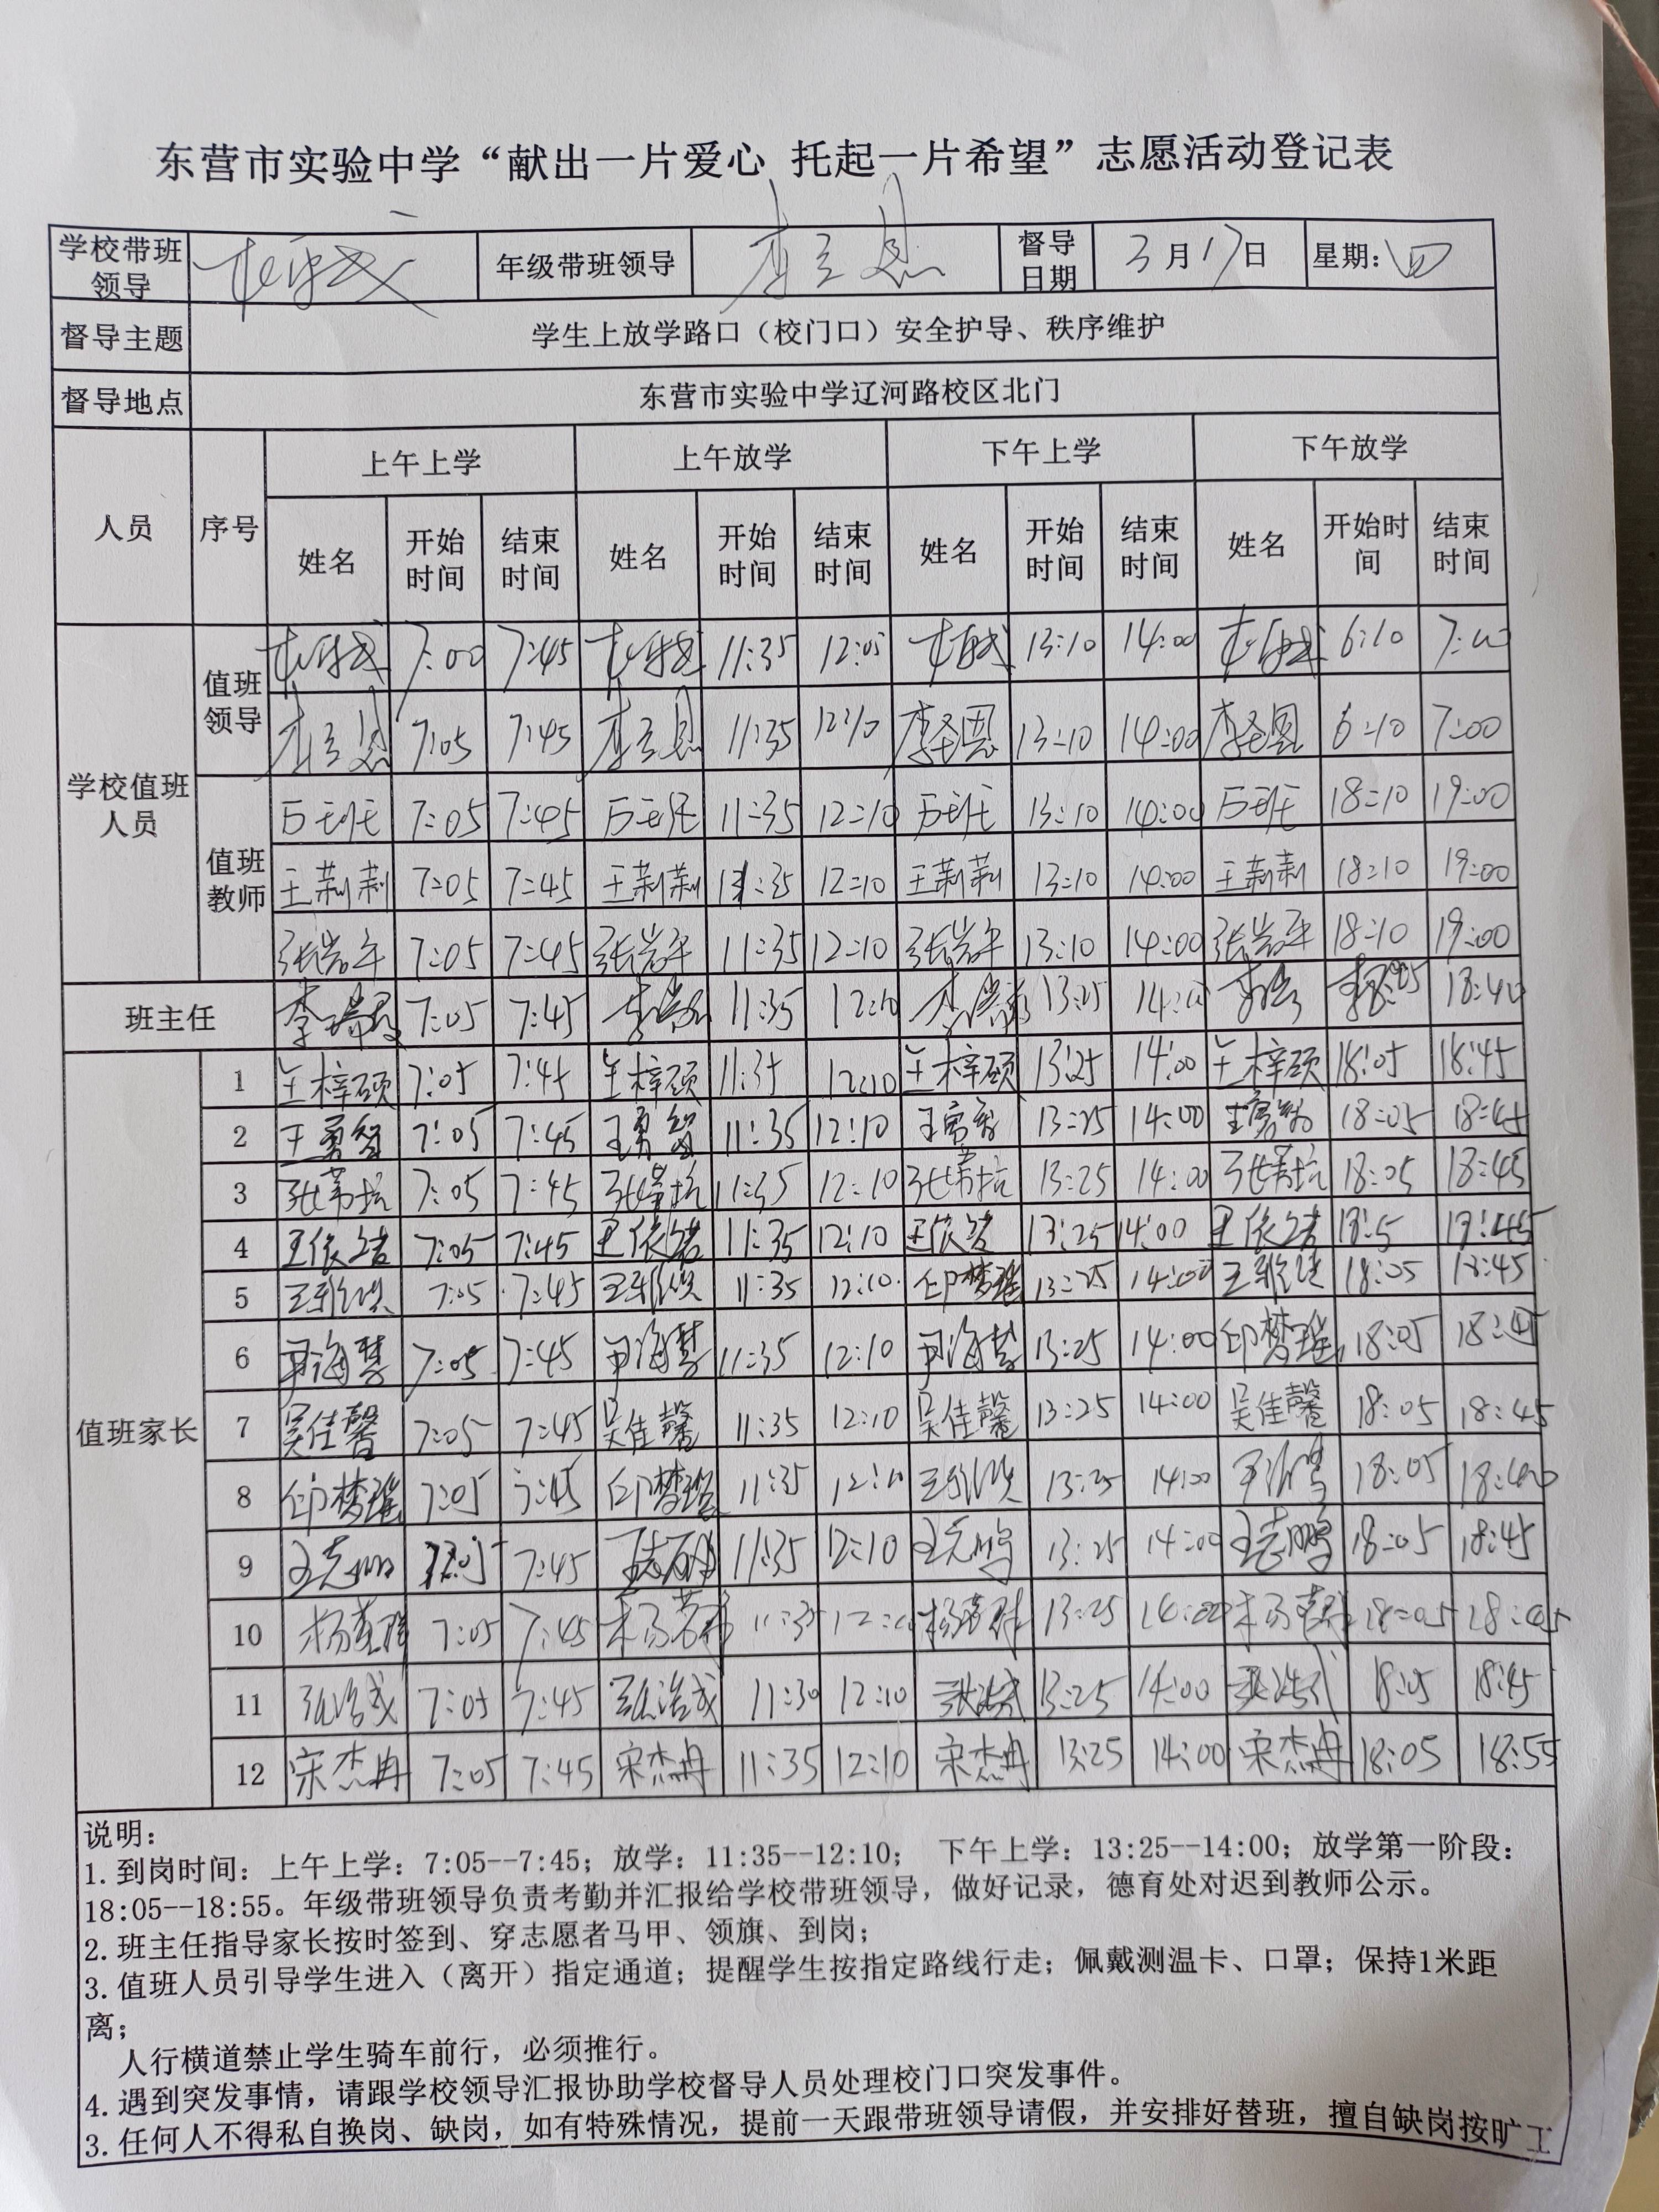 东营市实验中学“献出一片爱心 托起一片希望”志愿活动登记表
学校带班领导 年级带班领导 李立恩 督导日期 3月17日 星期:四
督导主题 学生上放学路口（校门口）安全护导、秩序维护
督导地点 东营市实验中学辽河路校区北门
人员 序号 上午上学 上午放学 下午上学 下午放学
姓名 开始时间 结束时间 姓名 开始时间 结束时间 姓名 开始时间 结束时间 姓名 开始时间 结束时间
学校值班人员
值班领导
7:00 7:45 11:35 12:05 13:10 14:00 6:10 7:00
李立恩 7:05 7:45 李立恩 11:35 12:10 李立恩 13:10 14:00 李立恩 6:10 7:00
值班教师
7:05 7:45 11:35 12:10 13:10 14:00 18:10 19:00
王莉莉 7:05 7:45 王莉莉 11:35 12:10 王莉莉 13:10 14:00 王莉莉 18:10 19:00
张岩平 7:05 7:45 张岩平 11:35 12:10 张岩平 13:10 14:00 张岩平 18:10 19:00
班主任 7:05 7:45 11:35 12:10 13:25 14:00 18:40
值班家长
1 王梓硕 7:05 7:45 王梓硕 11:35 12:10 王梓硕 13:25 14:00 王梓硕 18:05 18:45
2 王勇智 7:05 7:45 王勇智 11:35 12:10 13:25 14:00 18:05 18:45
3 7:05 7:45 11:35 12:10 13:25 14:00 18:05 18:45
4 7:05 7:45 11:35 12:10 13:25 14:00
5 7:05 7:45 11:35 12:10 印梦瑶 13:25 14:00 18:05 18:45
6 尹海慧 7:05 7:45 尹海慧 11:35 12:10 尹海慧 13:25 14:00 印梦瑶 18:05 18:45
7 吴佳馨 7:05 7:45 吴佳馨 11:35 12:10 吴佳馨 13:25 14:00 吴佳馨 18:05 18:45
8 印梦瑶 7:05 7:45 印梦瑶 11:35 12:10 13:25 14:00 18:05
9 王志鹏 7:05 7:45 王志鹏 11:35 12:10 王志鹏 13:25 14:00 王志鹏 18:05 18:45
10 7:05 7:45 11:35 13:25 14:00 18:05 18:45
11 张浩成 7:05 7:45 张浩成 11:30 12:10 张浩成 13:25 14:00 张浩成 18:05 18:45
12 宋杰冉 7:05 7:45 宋杰冉 11:35 12:10 宋杰冉 13:25 14:00 宋杰冉 18:05 18:55
说明：
1.到岗时间：上午上学：7:05--7:45；放学：11:35--12:10； 下午上学：13:25--14:00；放学第一阶段：
18:05--18:55。年级带班领导负责考勤并汇报给学校带班领导，做好记录，德育处对迟到教师公示。
2.班主任指导家长按时签到、穿志愿者马甲、领旗、到岗；
3.值班人员引导学生进入（离开）指定通道；提醒学生按指定路线行走；佩戴测温卡、口罩；保持1米距
离；
人行横道禁止学生骑车前行，必须推行。
4.遇到突发事情，请跟学校领导汇报协助学校督导人员处理校门口突发事件。
3.任何人不得私自换岗、缺岗，如有特殊情况，提前一天跟带班领导请假，并安排好替班，擅自缺岗按旷工